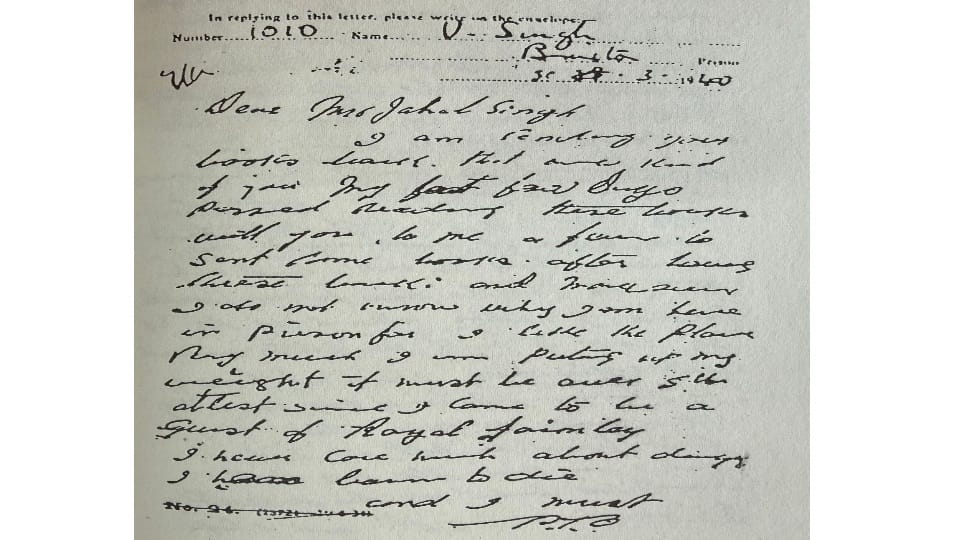 In replying to this letter, please write on the envelope:
Number 1010 Name U. Singh
Brixton Prison
30 . 3 . 1940
Dear Mr Jahal Singh
I am sending your
books back. that kind
of you My few Days
reading these books
will you to me a favour to
sent some books. after
these back. and
I do not know why I am here
in Prison for I like the Place
Very much I am Puting up my
weight it must be over 5 lb
atlest since I came to be a
Guest of Royal faimley
I never Care much about dieing
I born to die
and I must
P.T.O